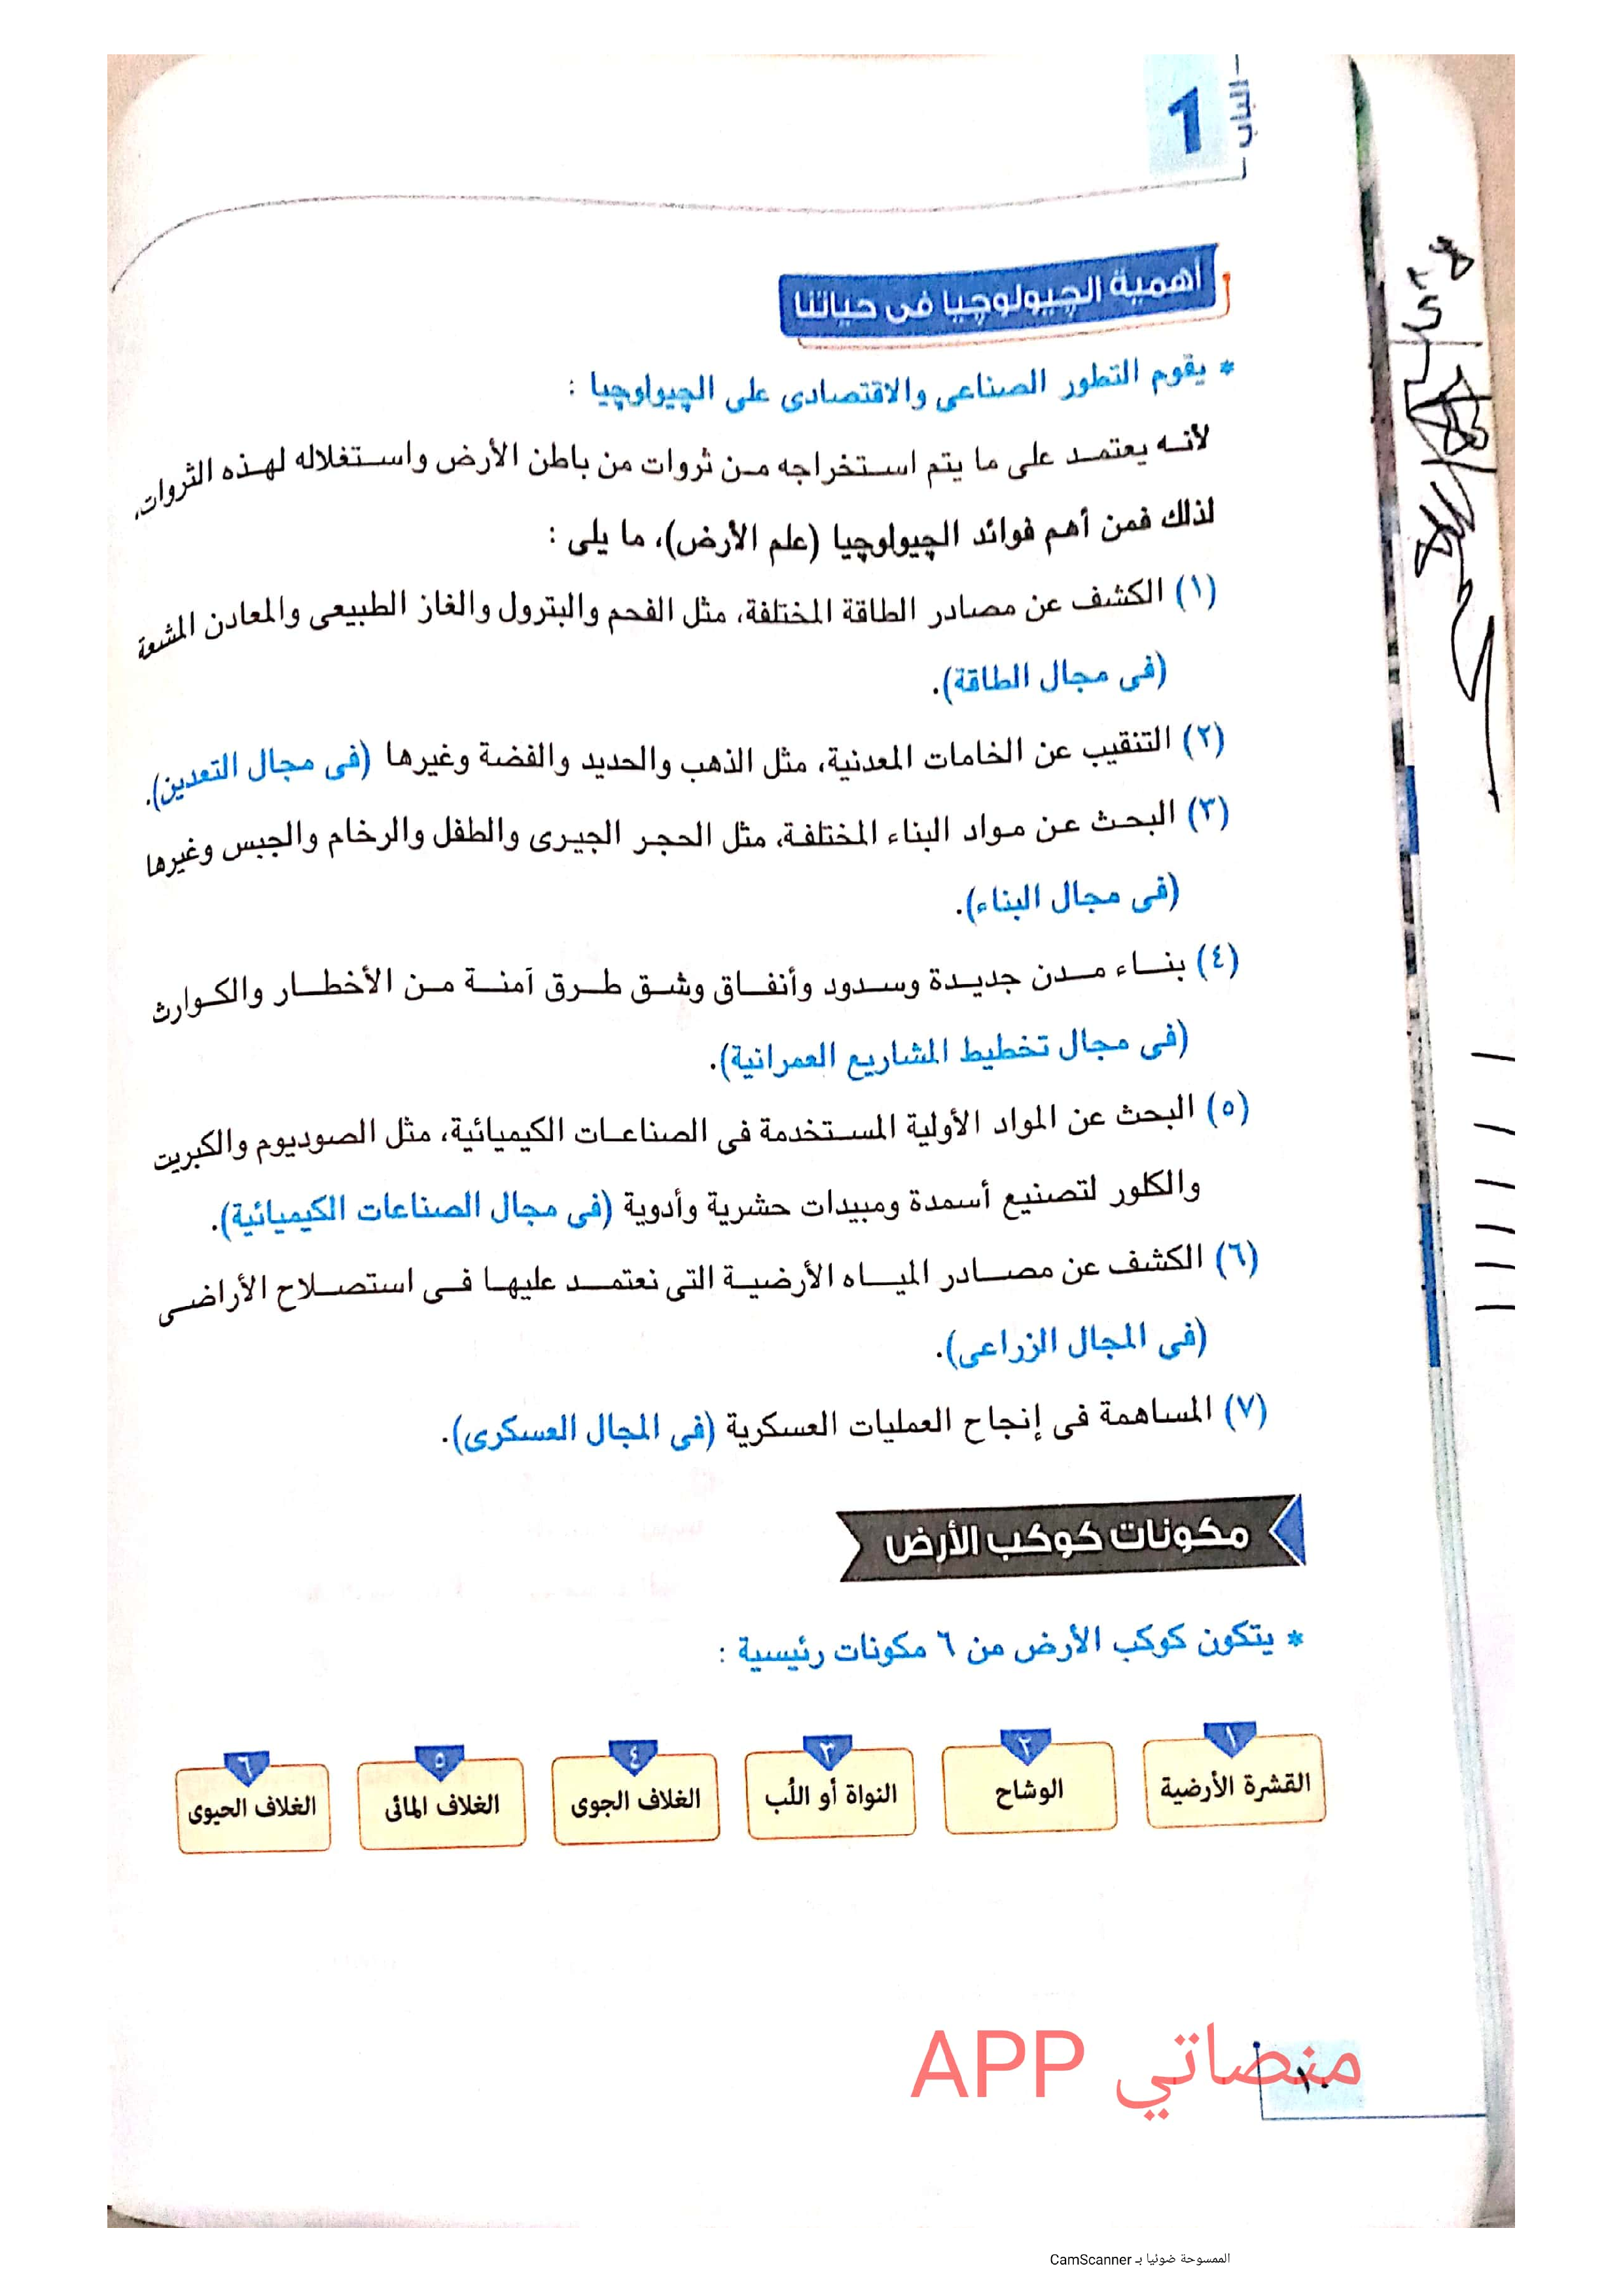 الباب
1
أهمية الچيولوچيا فى حياتنا
* يقوم التطور الصناعى والاقتصادى على الچيولوچيا :
لأنه يعتمد على ما يتم استخراجه من ثروات من باطن الأرض واستغلاله لهذه الثروات،
لذلك فمن أهم فوائد الچيولوچيا (علم الأرض)، ما يلى :
(١) الكشف عن مصادر الطاقة المختلفة، مثل الفحم والبترول والغاز الطبيعى والمعادن المشعة
(فى مجال الطاقة).
(٢) التنقيب عن الخامات المعدنية، مثل الذهب والحديد والفضة وغيرها (فى مجال التعدين).
(٣) البحث عن مواد البناء المختلفة، مثل الحجر الجيرى والطفل والرخام والجبس وغيرها
(فى مجال البناء).
(٤) بناء مدن جديدة وسدود وأنفاق وشق طرق آمنة من الأخطار والكوارث
(فى مجال تخطيط المشاريع العمرانية).
(٥) البحث عن المواد الأولية المستخدمة فى الصناعات الكيميائية، مثل الصوديوم والكبريت
والكلور لتصنيع أسمدة ومبيدات حشرية وأدوية (فى مجال الصناعات الكيميائية).
(٦) الكشف عن مصادر المياه الأرضية التى نعتمد عليها فى استصلاح الأراضى
(فى المجال الزراعى).
(٧) المساهمة فى إنجاح العمليات العسكرية (فى المجال العسكرى).
مكونات كوكب الأرض
* يتكون كوكب الأرض من ٦ مكونات رئيسية :
١ القشرة الأرضية
٢ الوشاح
٣ النواة أو اللُب
٤ الغلاف الجوى
٥ الغلاف المائى
٦ الغلاف الحيوى
منصاتي APP
١٠
الممسوحة ضوئيا بـ CamScanner